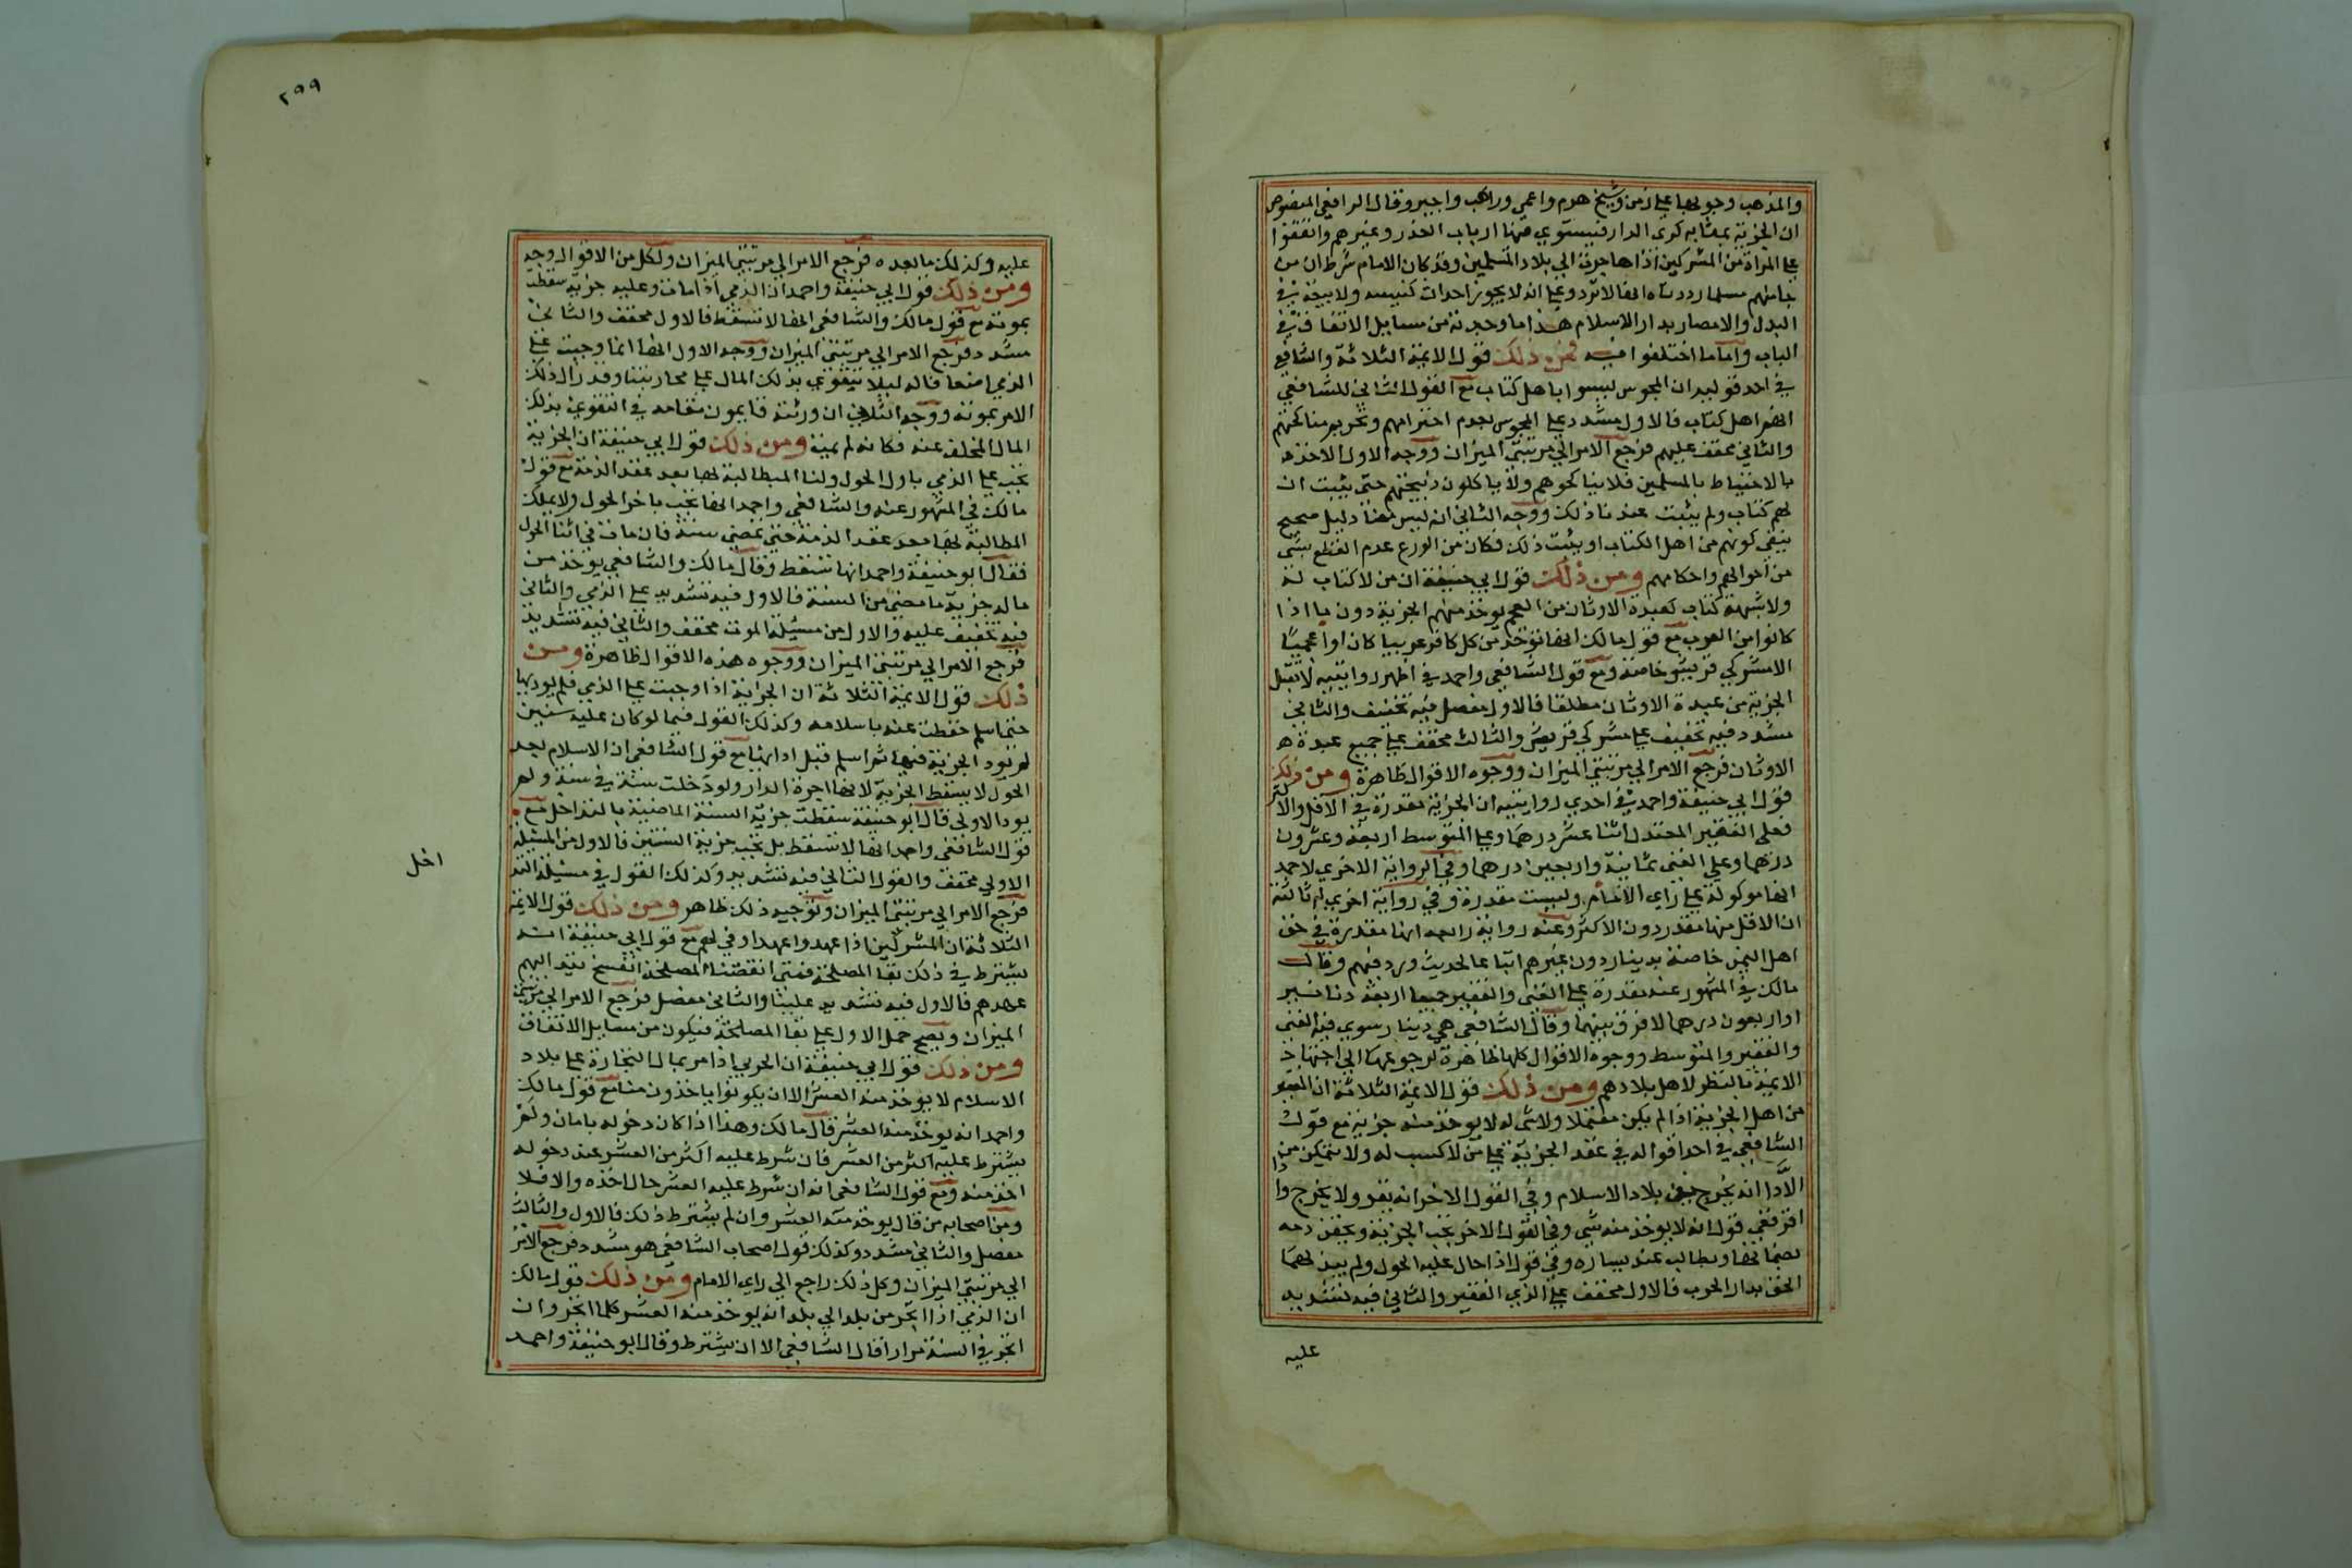 والمذهب وجوبها على زمن وشيخ هرم واعمى وراهب واجير وقال الرافعي المنصوص
ان الجزية بمثابة كرى الدار فيستوي فيها ارباب العذر وغيرهم واتفقوا
على المراة من المشركين اذا هاجرت الى بلاد المسلمين وقد كان الامام شرط ان من
جا منهم مسلما رددناه انها لا ترد وعلى انه لا يجوز احداث كنيسه ولا بيعة في
البدل والامصار بدار الاسلام هذا ما وجدته من مسايل الاتفاق في
الباب واما ما اختلفوا فيه فمن ذلك قول الايمة الثلاثة والشافعي
في احد قوليه ان المجوس ليسوا باهل كتاب مع القول الثاني للشافعي
انهم اهل كتاب فالاول مشدد على المجوس بعدم احترامهم وتحريم مناكحتهم
والثاني مخفف عليهم فرجع الامر الى مرتبتي الميزان ووجه الاول الاخذ
بالاحتياط بالمسلمين فلا يناكحوهم ولا ياكلون ذبيحتهم حتى يثبت ان
لهم كتاب ولم يثبت عندنا ذلك ووجه الثاني انه ليس لنا دليل صحيح
ينفي كونهم من اهل الكتاب او يثبت ذلك فكان من الورع عدم القطع بشى
من احوالهم واحكامهم ومن ذلك قول ابي حنيفة ان من لا كتاب له
ولا شبهة كتاب كعبدة الاوثان من العجم يوخذ منهم الجزية دون ما اذا
كانوا من العرب مع قول مالك انها تؤخذ من كل كافر عربيا كان او اعجميا
الا مشركي قريش خاصة ومع قول الشافعي واحمد في اظهر روايتيه لا تقبل
الجزية من عبدة الاوثان مطلقا فالاول مفصل فيه تخفيف والثاني
مشدد فيه تخفيف على مشركي قريش والثالث مخفف على جميع عبدة
الاوثان فرجع الامر الى مرتبتي الميزان ووجوه الاقوال ظاهرة ومن ذلك
قول ابي حنيفة واحمد في احدي روايتيه ان الجزية مقدرة في الاقل والاكثر
فعلى الفقير المعتمل اثنا عشر درهما وعلى المتوسط اربعة وعشرون
درهما وعلى الغنى ثمانية واربعين درهما وفي الرواية الاخري لاحمد
انها موكولة على راي الامام وليست مقدرة وفي رواية اخري له ثالثة
ان الاقل منها مقدر دون الاكثر وعنه رواية رابعه انها مقدرة في حق
اهل اليمن خاصة بدينار دون غيرهم اتباعا لحديث ورد فيهم وقال
مالك في المشهور عنه مقدرة على الغنى والفقير جميعا اربعة دنانير
او اربعون درهما لا فرق بينهما وقال الشافعى هي دينار يسوي فيه الغنى
والفقير والمتوسط ووجوه الاقوال كلها ظاهرة لرجوعها الى اجتهاد
الايمة بالنظر لاهل بلادهم ومن ذلك قول الايمة الثلاثة ان الفقير
من اهل الجزية اذا لم يكن معتملا ولا شى له لا يوخذ منه جزية مع قول
الشافعي في احد اقواله في عقد الجزية على من لا كسب له ولا يتمكن من
الادا انه يخرج من بلاد الاسلام وفي القول الاخر انه يقر ولا يخرج واذا
اقر ففي قول انه لا يوخذ منه شى وفي القول الاخر تجب الجزية ويحقن دمه
بضمانها ويطالب عند يساره وفي قول اذا حال عليه الحول ولم يبذلها
الحق بدار الحرب فالاول مخفف على الذي الفقير والثاني فيه تشديد
عليه
٢٩٩
عليه وكذلك ما بعده فرجع الامر الي مرتبتي الميزان ولكل من الاقوال وجه
ومن ذلك قول ابي حنيفة واحمد ان الذمي اذا مات وعليه جزية سقطت
بموته مع قول مالك والشافعي انها لا تسقط فالاول مخفف والثاني
مشدد فرجع الامر الي مرتبتي الميزان ووجه الاول انها انما وجبت على
الذمي اضعافا له ليلا يتقوي بذلك المال على محاربتنا وقد زال ذلك
الامر بموته ووجه الثاني ان ورثته قايمون مقامه في التقوي بذلك
المال المخلف عنه فكانه لم يمت ومن ذلك قول ابي حنيفة ان الجزية
تجب على الذمي باول الحول ولنا المطالبة بها بعد عقد الذمة مع قول
مالك في المشهور عنه والشافعي واحمد انها تجب باخر الحول ولا يملك
المطالبة بها بعد عقد الذمة حتى تمضي سنة فان مات في اثنا الحول
فقال ابو حنيفة واحمد انها تسقط وقال مالك والشافعي يوخذ من
ماله جزية ما مضى من السنة فالاول فيه تشديد على الذمي والثاني
فيه تخفيف عليه والاول من مسيلة الموت مخفف والثاني فيه تشديد
فرجع الامر الي مرتبتي الميزان ووجوه هذه الاقوال ظاهرة ومن
ذلك قول الايمة الثلاثة ان الجزاية اذا وجبت على الذمي فلم يودها
حتى اسلم سقطت عنه باسلامه وكذلك القول فيما لو كان عليه سنين
لم يود الجزية فيها ثم اسلم قبل ادايها مع قول الشافعي ان الاسلام بعد
الحول لا يسقط الجزية لانها اجرة الدار ولو دخلت سنة في سنة ولم
يود الاولي قال ابو حنيفة سقطت جزية السنة الماضية بالتداخل مع
قول الشافعي واحمد انها لا تسقط بل تجب جزية السنتين فالاول من المسيلة
الاولي مخفف والقول الثاني فيه تشديد وكذلك القول في مسيلة التد
اخل
فرجع الامر الي مرتبتي الميزان وتوجيه ذلك ظاهر ومن ذلك قول الايمة
الثلاثة ان المشركين اذا عهدوا عهدا وفي لهم مع قول ابي حنيفة انه
يشترط في ذلك بقا المصلحة فمتى انقضت المصلحة انفسخ نبذ اليهم
عهدهم فالاول فيه تشديد علينا والثاني مفصل فرجع الامر الي مرتبتي
الميزان ويصح حمل الاول على بقا المصلحة فيكون من مسايل الاتفاق
ومن ذلك قول ابي حنيفة ان الحربي اذا مر بمال التجارة على بلاد
الاسلام لا يوخذ منه العشر الا ان يكونوا ياخذون منا مع قول مالك
واحمد انه يوخذ منه العشر قال مالك وهذا اذا كان دخوله بامان ولم
يشترط عليه اكثر من العشر فان شرط عليه اكثر من العشر عند دخوله
اخذ منه ومع قول الشافعي انه ان شرط عليه العشر حال اخذه والا فلا
ومن اصحابه من قال يوخذ منه العشر وان لم يشترط ذلك فالاول والثالث
مفصل والثاني مشدد وكذلك قول اصحاب الشافعي هو مشدد فرجع الامر
الي مرتبتي الميزان وكل ذلك راجع الي راي الامام ومن ذلك قول مالك
ان الذمي اذا اتجر من بلد الي بلد انه يوخذ منه العشر كلما اتجر وان
اتجر في السنة مرارا قال الشافعي الا ان يشترط وقال ابو حنيفة واحمد